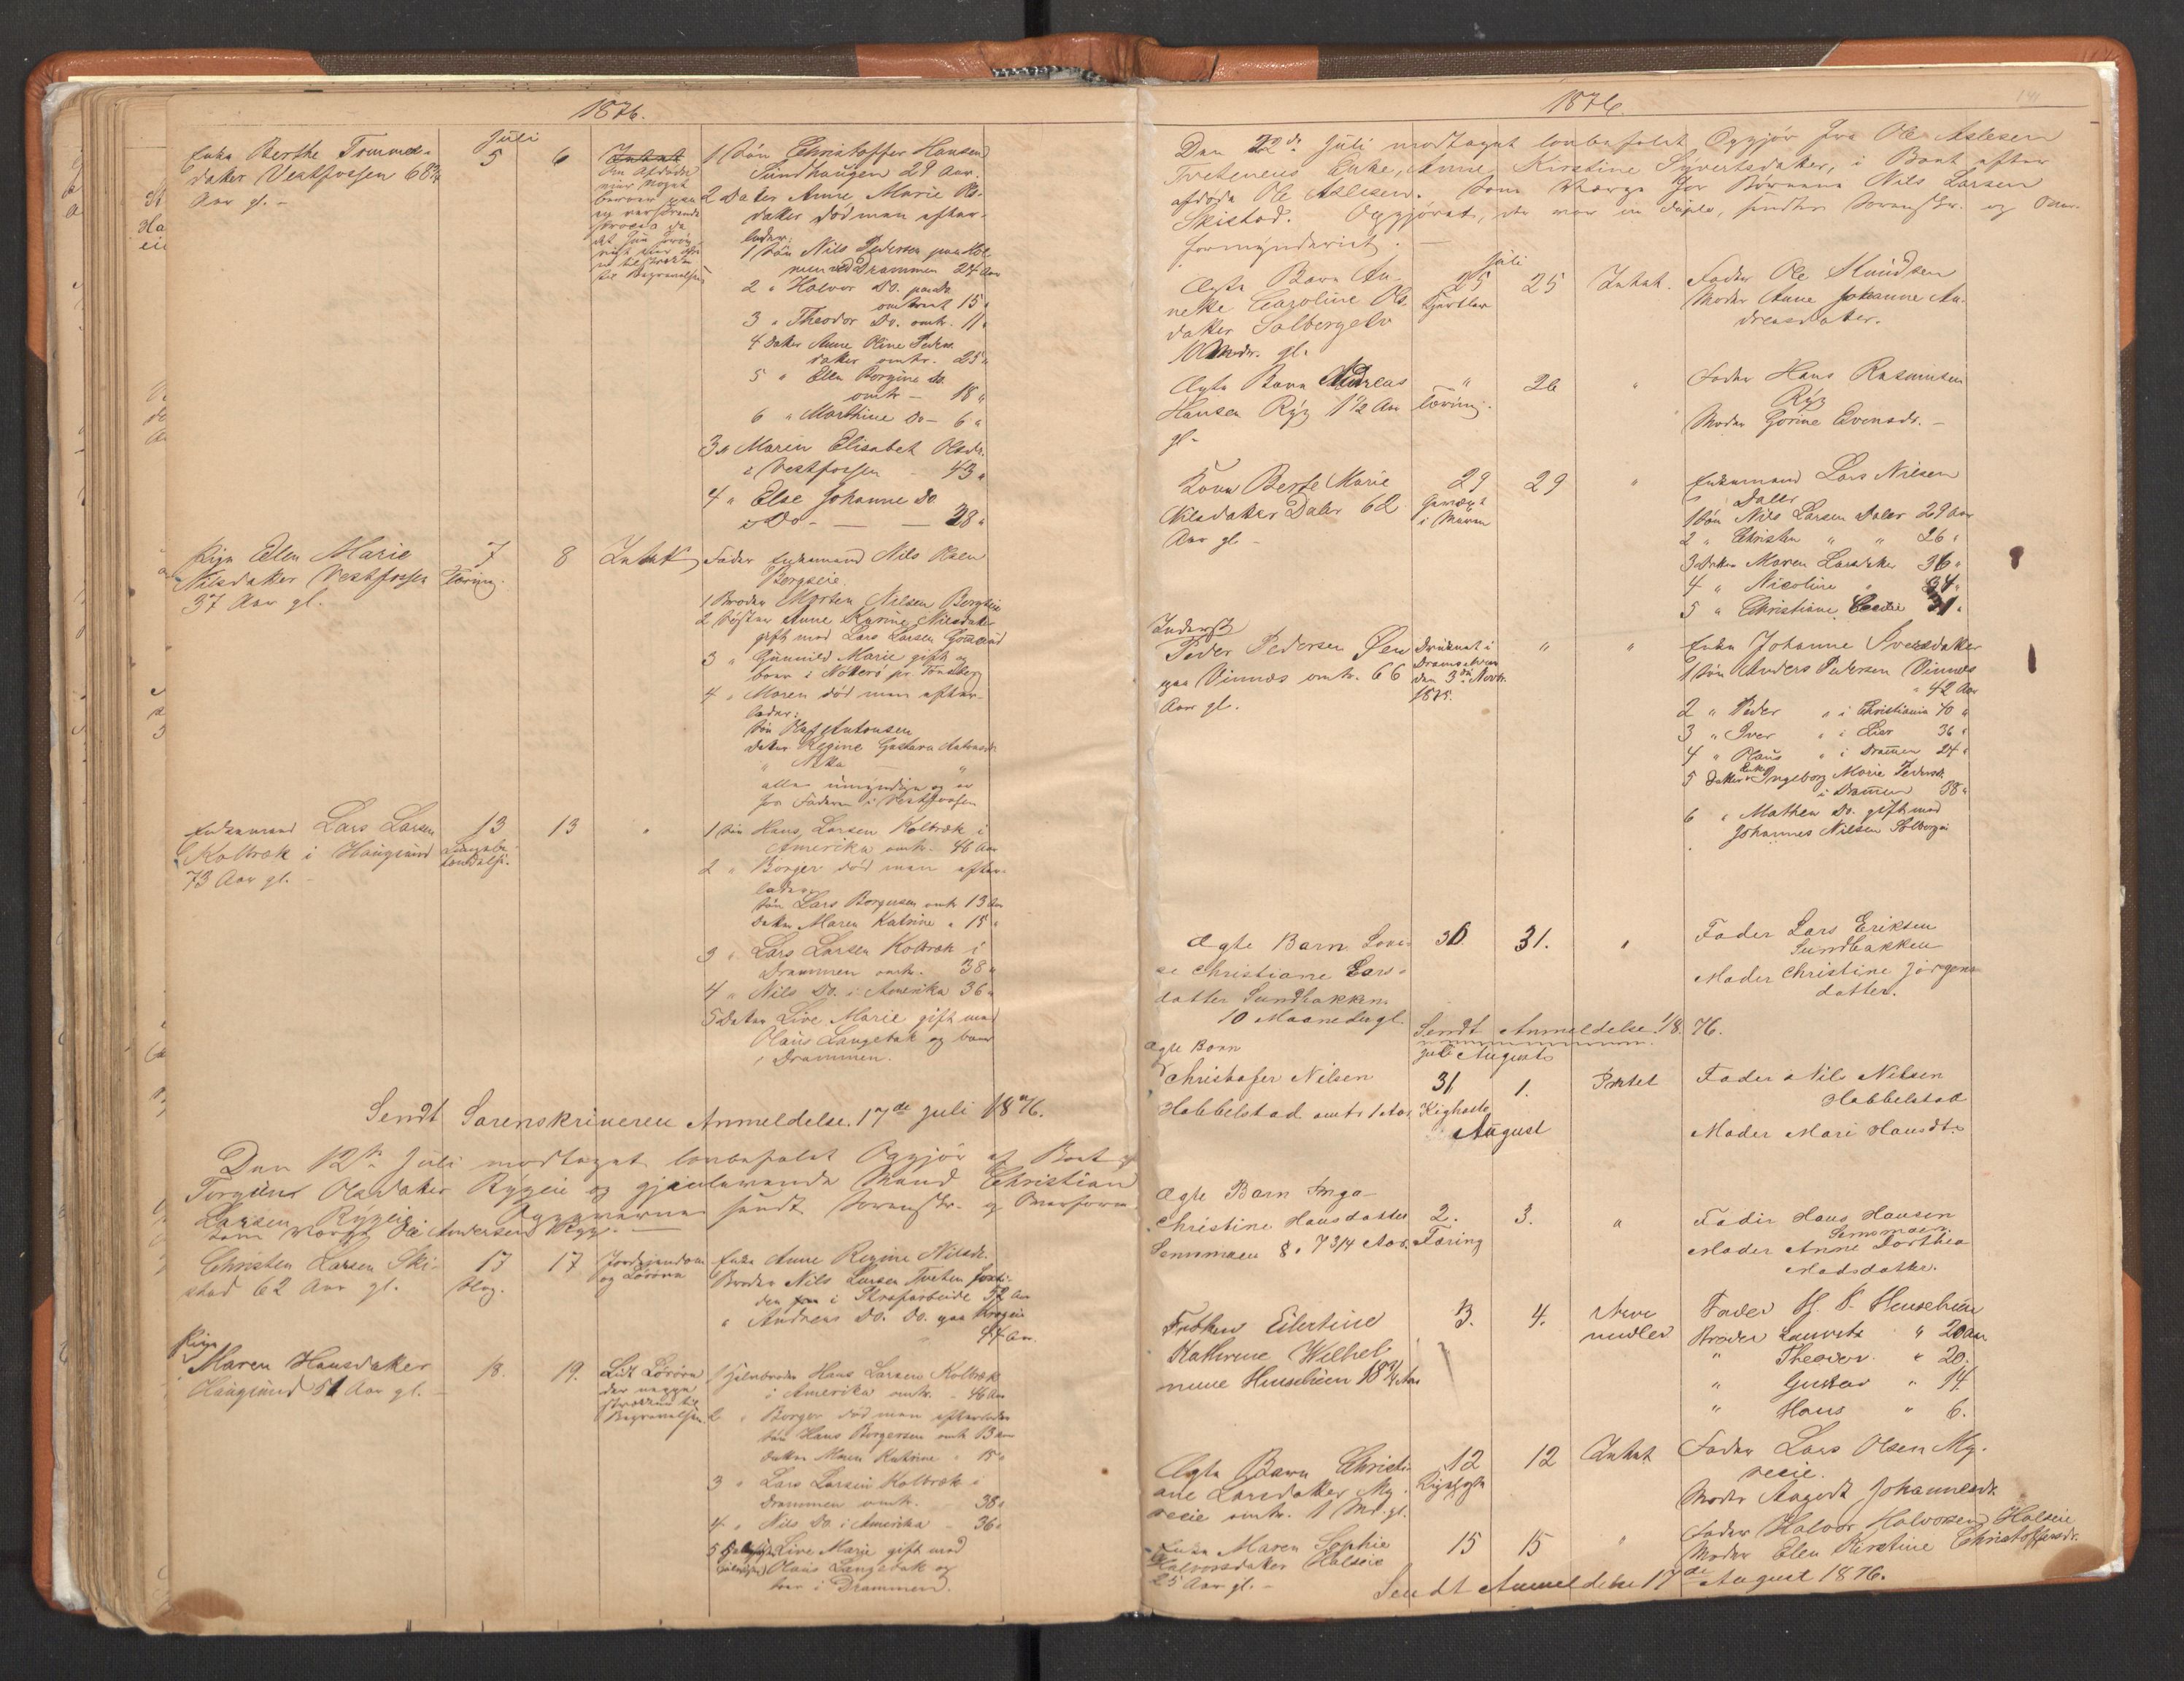 1876.
Juli
Enke Berthe Tommes-
datter Vestfossen 68¾
Aar gl. -
5
6
Intet
1 Søn Christoffer Hansen
Sundhaugen 29 Aar.
2 Datter Anne Marie Ols-
datter død men efter-
lader:
1 Søn Nils Pedersen paa Hol-
men ved Drammen 27 Aar
2 " Halvor Do.
omtrent 15 "
3 " Theodor Do. omtr. 11 "
4 Datter Anne Oline Peders-
datter omtr. 25 "
5 " Ellen Borgine Do.
omtr - 18 "
6 " Marthine Do - 6 "
3 " Maren Elisabet Olsdr.
i Vestfossen - 43 "
4 " Else Johanne Do
i Do - 38 "
til Begravelsen
Pige Ellen Marie
Nilsdatter Vestfossen
37 Aar gl.
7
Tæring.
8
Intet
Fader Enkemand Nils Olsen
Bergseie.
1 Broder Morten Nilsen Bergseie
2 Søster Anne Karine Nilsdatter
gift med Lars Larsen
3 " Gunnild Marie gift og
boer i Nøtterø pr. Tønsberg
4 " Maren død men efter-
lader:
Søn Olaf Antonsen
Datter Regine Gustava Antonsdr.
alle umyndige og er
hos Faderen i Vestfossen
Enkemand Lars Larsen
Kolbræk i Haugsund
73 Aar gl. -
13
13
"
1 Søn Hans Larsen Kolbræk i
Amerika omtr. 46 Aar
2 " Borger død men efter-
lader
Søn Lars Borgersen omtr 13 Aar
Datter Maren Katrine " 15 "
3 " Lars Larsen Kolbræk i
Drammen omtr. 38 "
4 " Nils Do. i Amerika 36 "
5 Datter Live Marie gift med
Olaus Langebak og boer
i Drammen.
Sendt Sorenskriveren Anmeldelse. 17de juli 1876.
Den 12te Juli modtaget lovbefalet Opgjør af Boet
Torgine Olsdatter Rygeie og gjenlevende Mand Christian
Larsen Rygeie. Opgjørerne sendt Sorenskr. og Overform
som Værge Ole Andersen Ryg. -
Christen Larsen Ski-
stad 62 Aar gl.
17
Slag.
17
Jordejendom
og Løsøre
Enke Anne Regine Nilsdr.
Broder Nils Larsen Tveten
den i Strafarbeide 52 Aar
" Andreas Do. Do. paa
44 Aar.
Pige
Maren Hansdatter
Haugsund 51 Aar gl.
18.
19.
Lidt Løsøre
der neppe
strækker til
Begravelsen.
1 Halvbroder Hans Larsen Kolbræk
i Amerika omtr. - 46 Aar
2 " Borger død men efterlader
Søn Hans Borgersen omtr 13 Aar
Datter Maren Katrine " 15 "
3 " Lars Larsen Kolbræk i
Drammen omtr. 38 "
4 " Nils Do. i Amerika - 36 "
5 Live Marie gift med
Olaus Langebak og
boer i Drammen.
1876.
Den 22de Juli modtaget lovbefalet Opgjør fra Ole Aslesen
Tvetenens Enke, Anne Kirstine Syvertsdatter, i Boet efter
afdøde Ole Aslesen. Som Værge for Børnene Nils Larsen
Skistad. Opgjøret, der var in duplo, sendtes Sorenskr. og Over-
formynderiet. -
Juli
Ægte Barn An-
nette Caroline Ols-
datter Solbergelv
10 Mndr. gl.
25
25
Intet.
Fader Ole Knudsen
Moder Anne Johanne An-
dreasdatter.
Ægte Barn Andreas
Hansen Ryg 1½ Aar
gl -
"
Tæring.
26
"
Fader Hans Rasmusen
Ryg
Moder Gorine Evensdr. -
Kone Berte Marie
Nilsdatter Daler 62
Aar gl. -
29
i Maven
29
"
Enkemand Lars Nilsen
Daler
1 Søn Nils Larsen Daler 29 Aar
2 " Christen " " 26 "
3 Datter Maren Larsdatter 36 "
4 " Nicoline " 34 "
5 " Christiane Cecilie 31 "
Inderst
Peder Pedersen Øen
paa Vinnæs omtr. 66
Aar gl.
Druknet i
Dramselven
den 3die Novbr.
1875.
"
"
Enke Johanne Iversdatter
1 Søn Anders Pedersen Vinnæs
" 42 Aar
2 " Peder " i Christiania 40 "
3 " Iver " i Lier 36 "
4 " Olaus " i Drammen 24 "
5 Datter Enke Ingeborg Marie Pedersdr.
i Drammen 38 "
6 " Mathea Do. gift med
Johannes Nilsen Solberg
Ægte Barn Lovi-
se Christiane Lars-
datter Sundbakken
10 Maaneder gl.
30
31.
"
Fader Lars Eriksen
Sundbakken
Moder Christine Jörgens-
datter.
Sendt Anmeldelse 1/8. 76.
Ægte Barn
Christofer Nilsen
Hobbelstad omtr 1 Aar
juli Augusts
31
Kighoste
1.
Intet
Fader Nils Nilsen
Hobbelstad
Moder Mari Hansdtr.
August
Ægte Barn Inga
Christine Hansdatter
Semmæn 8. 7 3/4 Aar.
2.
Tæring
3.
"
Fader Hans Hansen
Semmæn.
Moder Anne Dorthea
Madsdatter.
Frøken Eilertine
Kathrine Wilhel-
mine Henschien 18¾ Aar
3.
4.
Arve
midler
Fader H. P. Henschien
Broder Lauritz " 20 Aar
" Theodor. " 20.
" Gustav " 14.
" Hans " 6.
Ægte Barn Christi-
ane Larsdatter My-
reeie omtr. 1 Md. gl.
12
12
Intet
Fader Lars Olsen My-
reeie.
Moder Angert Johannesdr.
Maren Sophie
Halvorsdatter Halseie
25 Aar gl. -
15
15
"
Fader Halvor Halvorsen Halseie
Moder Elen Kirstine Christoffersdr.
Sendt Anmeldelse 17de August 1876.